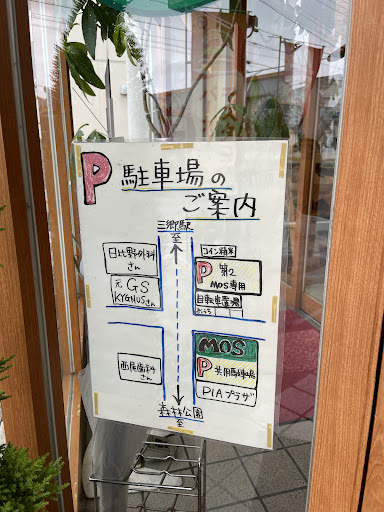 P 駐車場の
ご案内
三郷駅
至
日比野外科
さん
元 GS
KYGNUSさん
コイン精米
P 第2
MOS専用
自転車置場
西尾歯科
さん
MOS
P 共用駐車場
PIAプラザ
森林公園
至